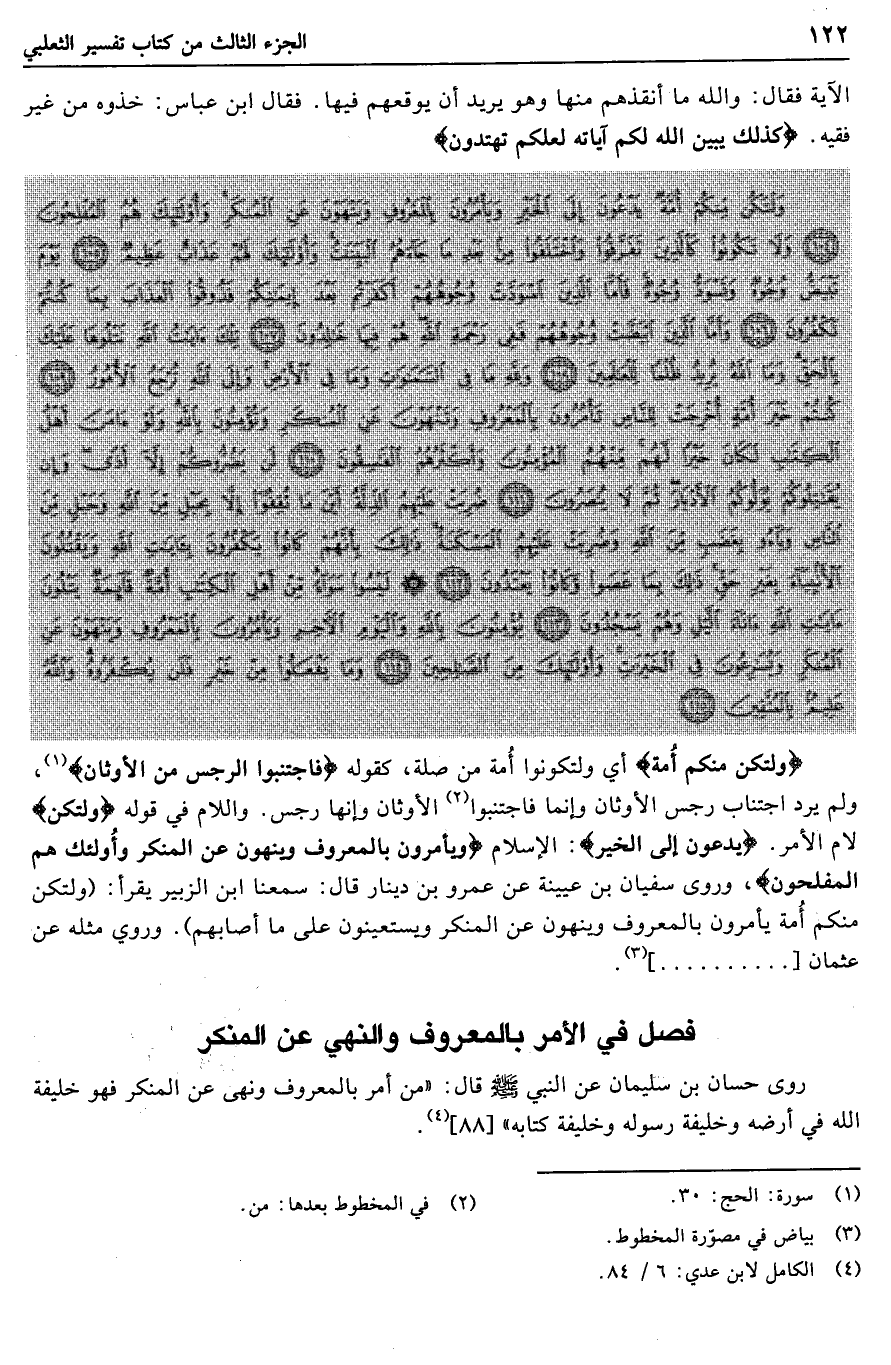 ١٢٢
الجزء الثالث من كتاب تفسير الثعلبي
الآية فقال: والله ما أنقذهم منها وهو يريد أن يوقعهم فيها. فقال ابن عباس: خذوه من غير
فقيه. ﴿كذلك يبين الله لكم آياته لعلكم تهتدون﴾
وَلْتَكُن مِّنكُمْ أُمَّةٌ يَدْعُونَ إِلَى الْخَيْرِ وَيَأْمُرُونَ بِالْمَعْرُوفِ وَيَنْهَوْنَ عَنِ الْمُنكَرِ وَأُوْلَئِكَ هُمُ الْمُفْلِحُونَ
(١٠٤) وَلَا تَكُونُوا كَالَّذِينَ تَفَرَّقُوا وَاخْتَلَفُوا مِنْ بَعْدِ مَا جَاءَهُمُ الْبَيِّنَتُ وَأُوْلَئِكَ لَهُمْ عَذَابٌ عَظِيمٌ (١٠٥) يَوْمَ
تَبْيَضُّ وُجُوهٌ وَتَسْوَدُّ وُجُوهٌ فَأَمَّا الَّذِينَ اسْوَدَّتْ وُجُوهُهُمْ أَكَفَرْتُم بَعْدَ إِيمَنِكُمْ فَذُوقُوا الْعَذَابَ بِمَا كُنتُمْ
تَكْفُرُونَ (١٠٦) وَأَمَّا الَّذِينَ ابْيَضَّتْ وُجُوهُهُمْ فَفِي رَحْمَةِ اللَّهِ هُمْ فِيهَا خَلِدُونَ (١٠٧) تِلْكَ ءَايَتُ اللَّهِ نَتْلُوهَا عَلَيْكَ
بِالْحَقِّ وَمَا اللَّهُ يُرِيدُ ظُلْمًا لِّلْعَلَمِينَ (١٠٨) وَلِلَّهِ مَا فِي السَّمَوَتِ وَمَا فِي الْأَرْضِ وَإِلَى اللَّهِ تُرْجَعُ الْأُمُورُ (١٠٩)
كُنتُمْ خَيْرَ أُمَّةٍ أُخْرِجَتْ لِلنَّاسِ تَأْمُرُونَ بِالْمَعْرُوفِ وَتَنْهَوْنَ عَنِ الْمُنكَرِ وَتُؤْمِنُونَ بِاللَّهِ وَلَوْ ءَامَنَ أَهْلُ
الْكِتَبِ لَكَانَ خَيْرًا لَّهُم مِّنْهُمُ الْمُؤْمِنُونَ وَأَكْثَرُهُمُ الْفَسِقُونَ (١١٠) لَن يَضُرُّوكُمْ إِلَّا أَذًى وَإِن
يُقَتِلُوكُمْ يُوَلُّوكُمُ الْأَدْبَارَ ثُمَّ لَا يُنصَرُونَ (١١١) ضُرِبَتْ عَلَيْهِمُ الذِّلَّةُ أَيْنَ مَا ثُقِفُوا إِلَّا بِحَبْلٍ مِّنَ اللَّهِ وَحَبْلٍ مِّنَ
النَّاسِ وَبَاءُو بِغَضَبٍ مِّنَ اللَّهِ وَضُرِبَتْ عَلَيْهِمُ الْمَسْكَنَةُ ذَلِكَ بِأَنَّهُمْ كَانُوا يَكْفُرُونَ بِءَايَتِ اللَّهِ وَيَقْتُلُونَ
الْأَنْبِيَاءَ بِغَيْرِ حَقٍّ ذَلِكَ بِمَا عَصَوا وَّكَانُوا يَعْتَدُونَ (١١٢) لَيْسُوا سَوَاءً مِّنْ أَهْلِ الْكِتَبِ أُمَّةٌ قَائِمَةٌ يَتْلُونَ
ءَايَتِ اللَّهِ ءَانَاءَ الَّيْلِ وَهُمْ يَسْجُدُونَ (١١٣) يُؤْمِنُونَ بِاللَّهِ وَالْيَوْمِ الْآخِرِ وَيَأْمُرُونَ بِالْمَعْرُوفِ وَيَنْهَوْنَ عَنِ
الْمُنكَرِ وَيُسَرِعُونَ فِي الْخَيْرَتِ وَأُوْلَئِكَ مِنَ الصَّلِحِينَ (١١٤) وَمَا يَفْعَلُوا مِنْ خَيْرٍ فَلَن يُكْفَرُوهُ وَاللَّهُ
عَلِيمٌ بِالْمُتَّقِينَ (١١٥)
﴿ولتكن منكم أُمة﴾ أي ولتكونوا أُمة من صلة، كقوله ﴿فاجتنبوا الرجس من الأوثان﴾(١)،
ولم يرد اجتناب رجس الأوثان وإنما فاجتنبوا(٢) الأوثان وإنها رجس. واللام في قوله ﴿ولتكن﴾
لام الأمر. ﴿يدعون إلى الخير﴾: الإسلام ﴿ويأمرون بالمعروف وينهون عن المنكر وأُولئك هم
المفلحون﴾، وروى سفيان بن عيينة عن عمرو بن دينار قال: سمعنا ابن الزبير يقرأ: (ولتكن
منكم أُمة يأمرون بالمعروف وينهون عن المنكر ويستعينون على ما أصابهم). وروي مثله عن
عثمان [..........](٣).
فصل في الأمر بالمعروف والنهي عن المنكر
روى حسان بن سليمان عن النبي ﷺ قال: «من أمر بالمعروف ونهى عن المنكر فهو خليفة
الله في أرضه وخليفة رسوله وخليفة كتابه» [٨٨](٤).
(١) سورة: الحج: ٣٠.
(٢) في المخطوط بعدها: من.
(٣) بياض في مصوّرة المخطوط.
(٤) الكامل لابن عدي: ٦ / ٨٤.